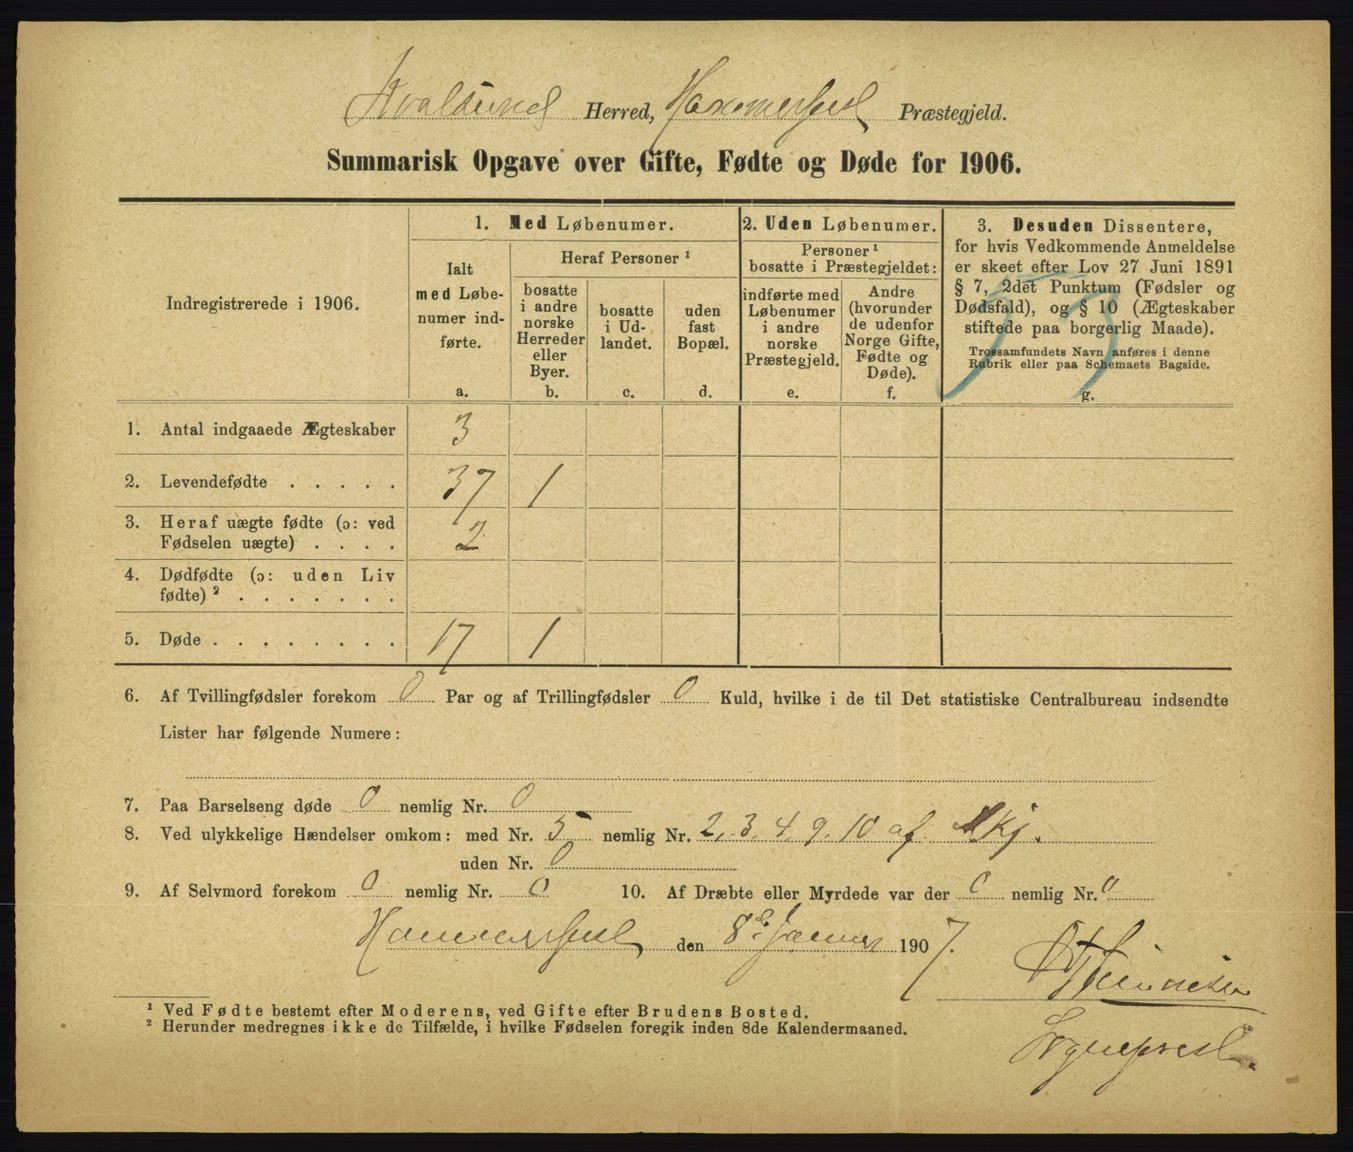 Kvalsund Herred, Hammerfest Præstegjeld.
Summarisk Opgave over Gifte, Fødte og Døde for 1906.
Indregistrerede i 1906.
1. Med Løbenumer.
Ialt
med Løbe-
numer ind-
førte.
a.
Heraf Personer ¹
bosatte
i andre
norske
Herreder
eller
Byer.
b.
bosatte
i Ud-
landet.
c.
uden
fast
Bopæl.
d.
2. Uden Løbenumer.
Personer ¹
bosatte i Præstegjeldet:
indførte med
Løbenumer
i andre
norske
Præstegjeld.
e.
Andre
(hvorunder
de udenfor
Norge Gifte,
Fødte og
Døde).
f.
3. Desuden Dissentere,
for hvis Vedkommende Anmeldelse
er skeet efter Lov 27 Juni 1891
§ 7, 2det Punktum (Fødsler og
Dødsfald), og § 10 (Ægteskaber
stiftede paa borgerlig Maade).
Trossamfundets Navn anføres i denne
Rubrik eller paa Schemaets Bagside.
g.
1. Antal indgaaede Ægteskaber 3
2. Levendefødte . . . . . 37 1
3. Heraf uægte fødte (ɔ: ved
Fødselen uægte) . . . . 2
4. Dødfødte (ɔ: uden Liv
fødte) ² . . . . . . .
5. Døde . . . . . . . . 17 1
6. Af Tvillingfødsler forekom 0 Par og af Trillingfødsler 0 Kuld, hvilke i de til Det statistiske Centralbureau indsendte
Lister har følgende Numere:
7. Paa Barselseng døde 0 nemlig Nr. 0
8. Ved ulykkelige Hændelser omkom: med Nr. 5 nemlig Nr. 2, 3, 4, 9, 10 af Mkj.
uden Nr. 0
9. Af Selvmord forekom 0 nemlig Nr. 0 10. Af Dræbte eller Myrdede var der 0 nemlig Nr. 0
Hammerfest den 8de Januar 1907.
Sogneprest.
¹ Ved Fødte bestemt efter Moderens, ved Gifte efter Brudens Bosted.
² Herunder medregnes ikke de Tilfælde, i hvilke Fødselen foregik inden 8de Kalendermaaned.